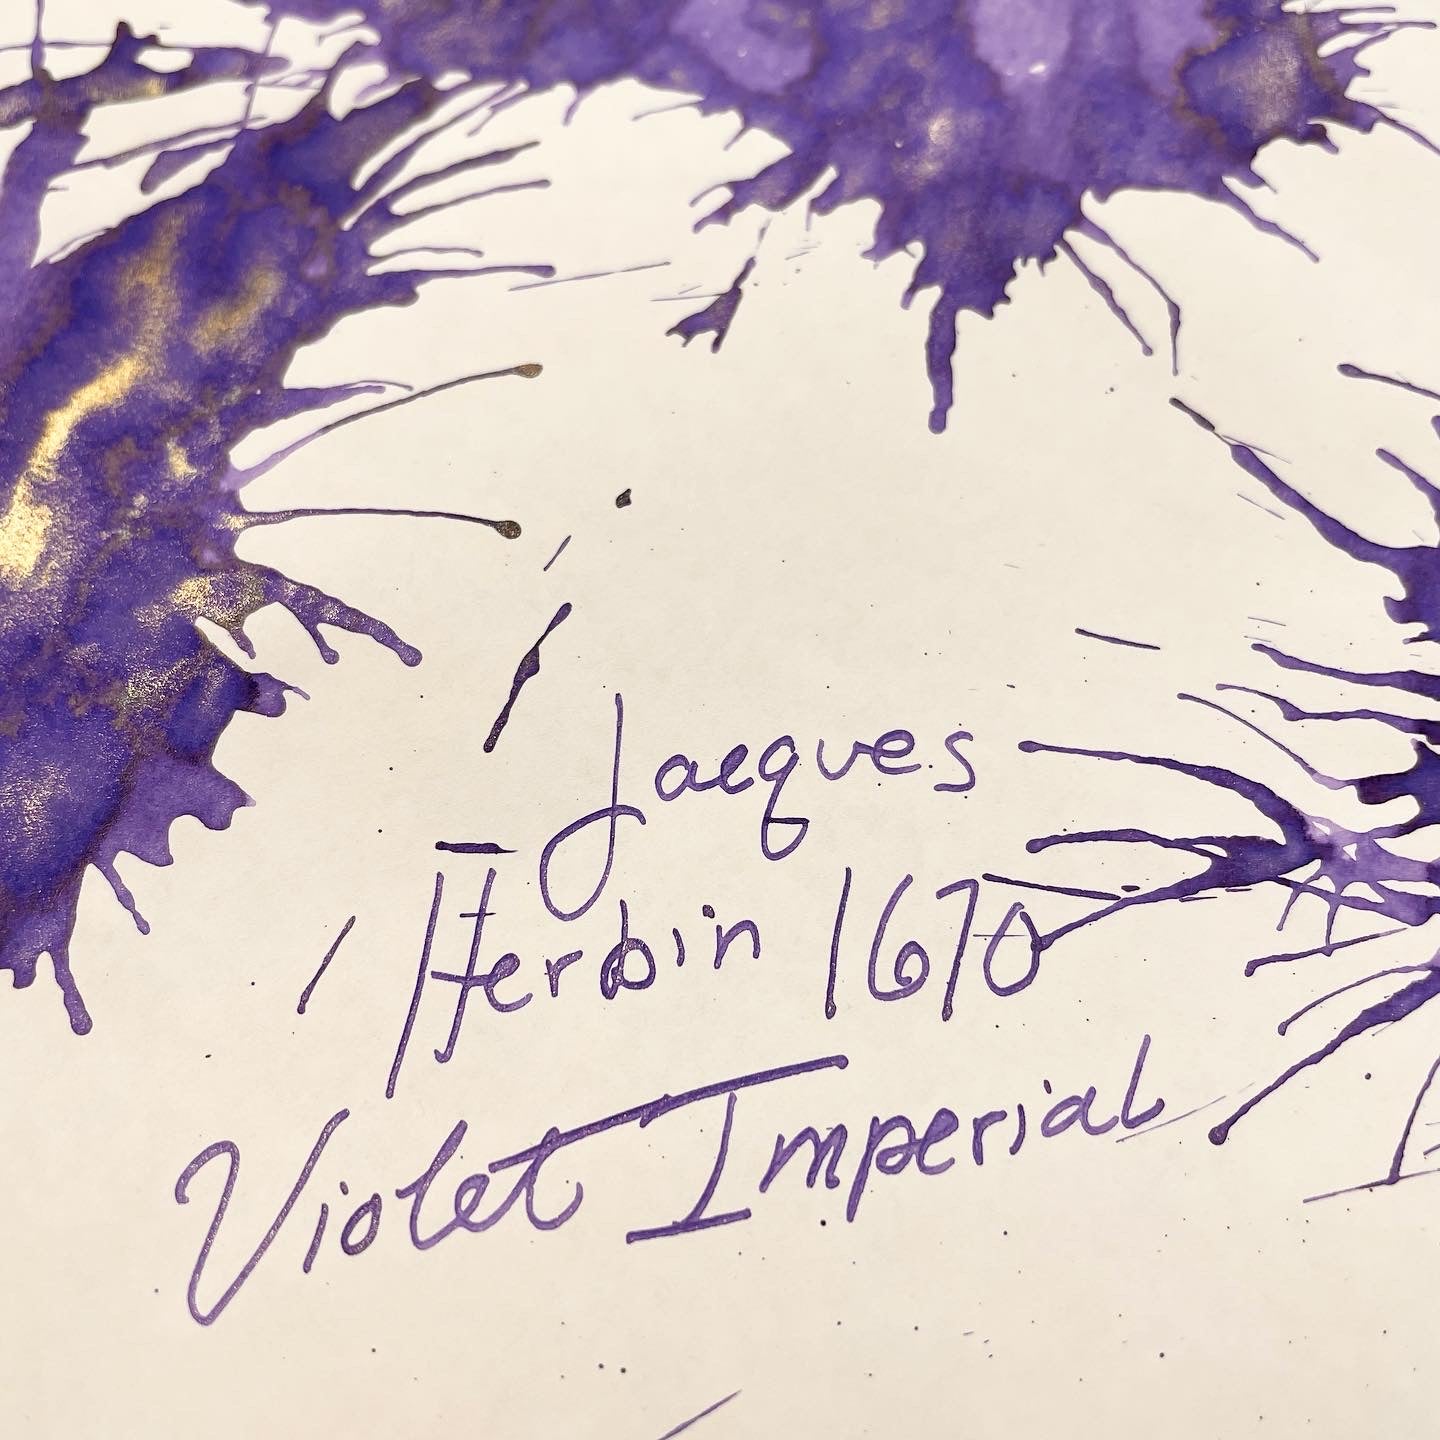 Jacques
Herbin 1670
Violet Imperial